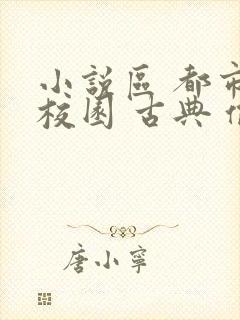 小說區 都市
校園 古典
唐小寧